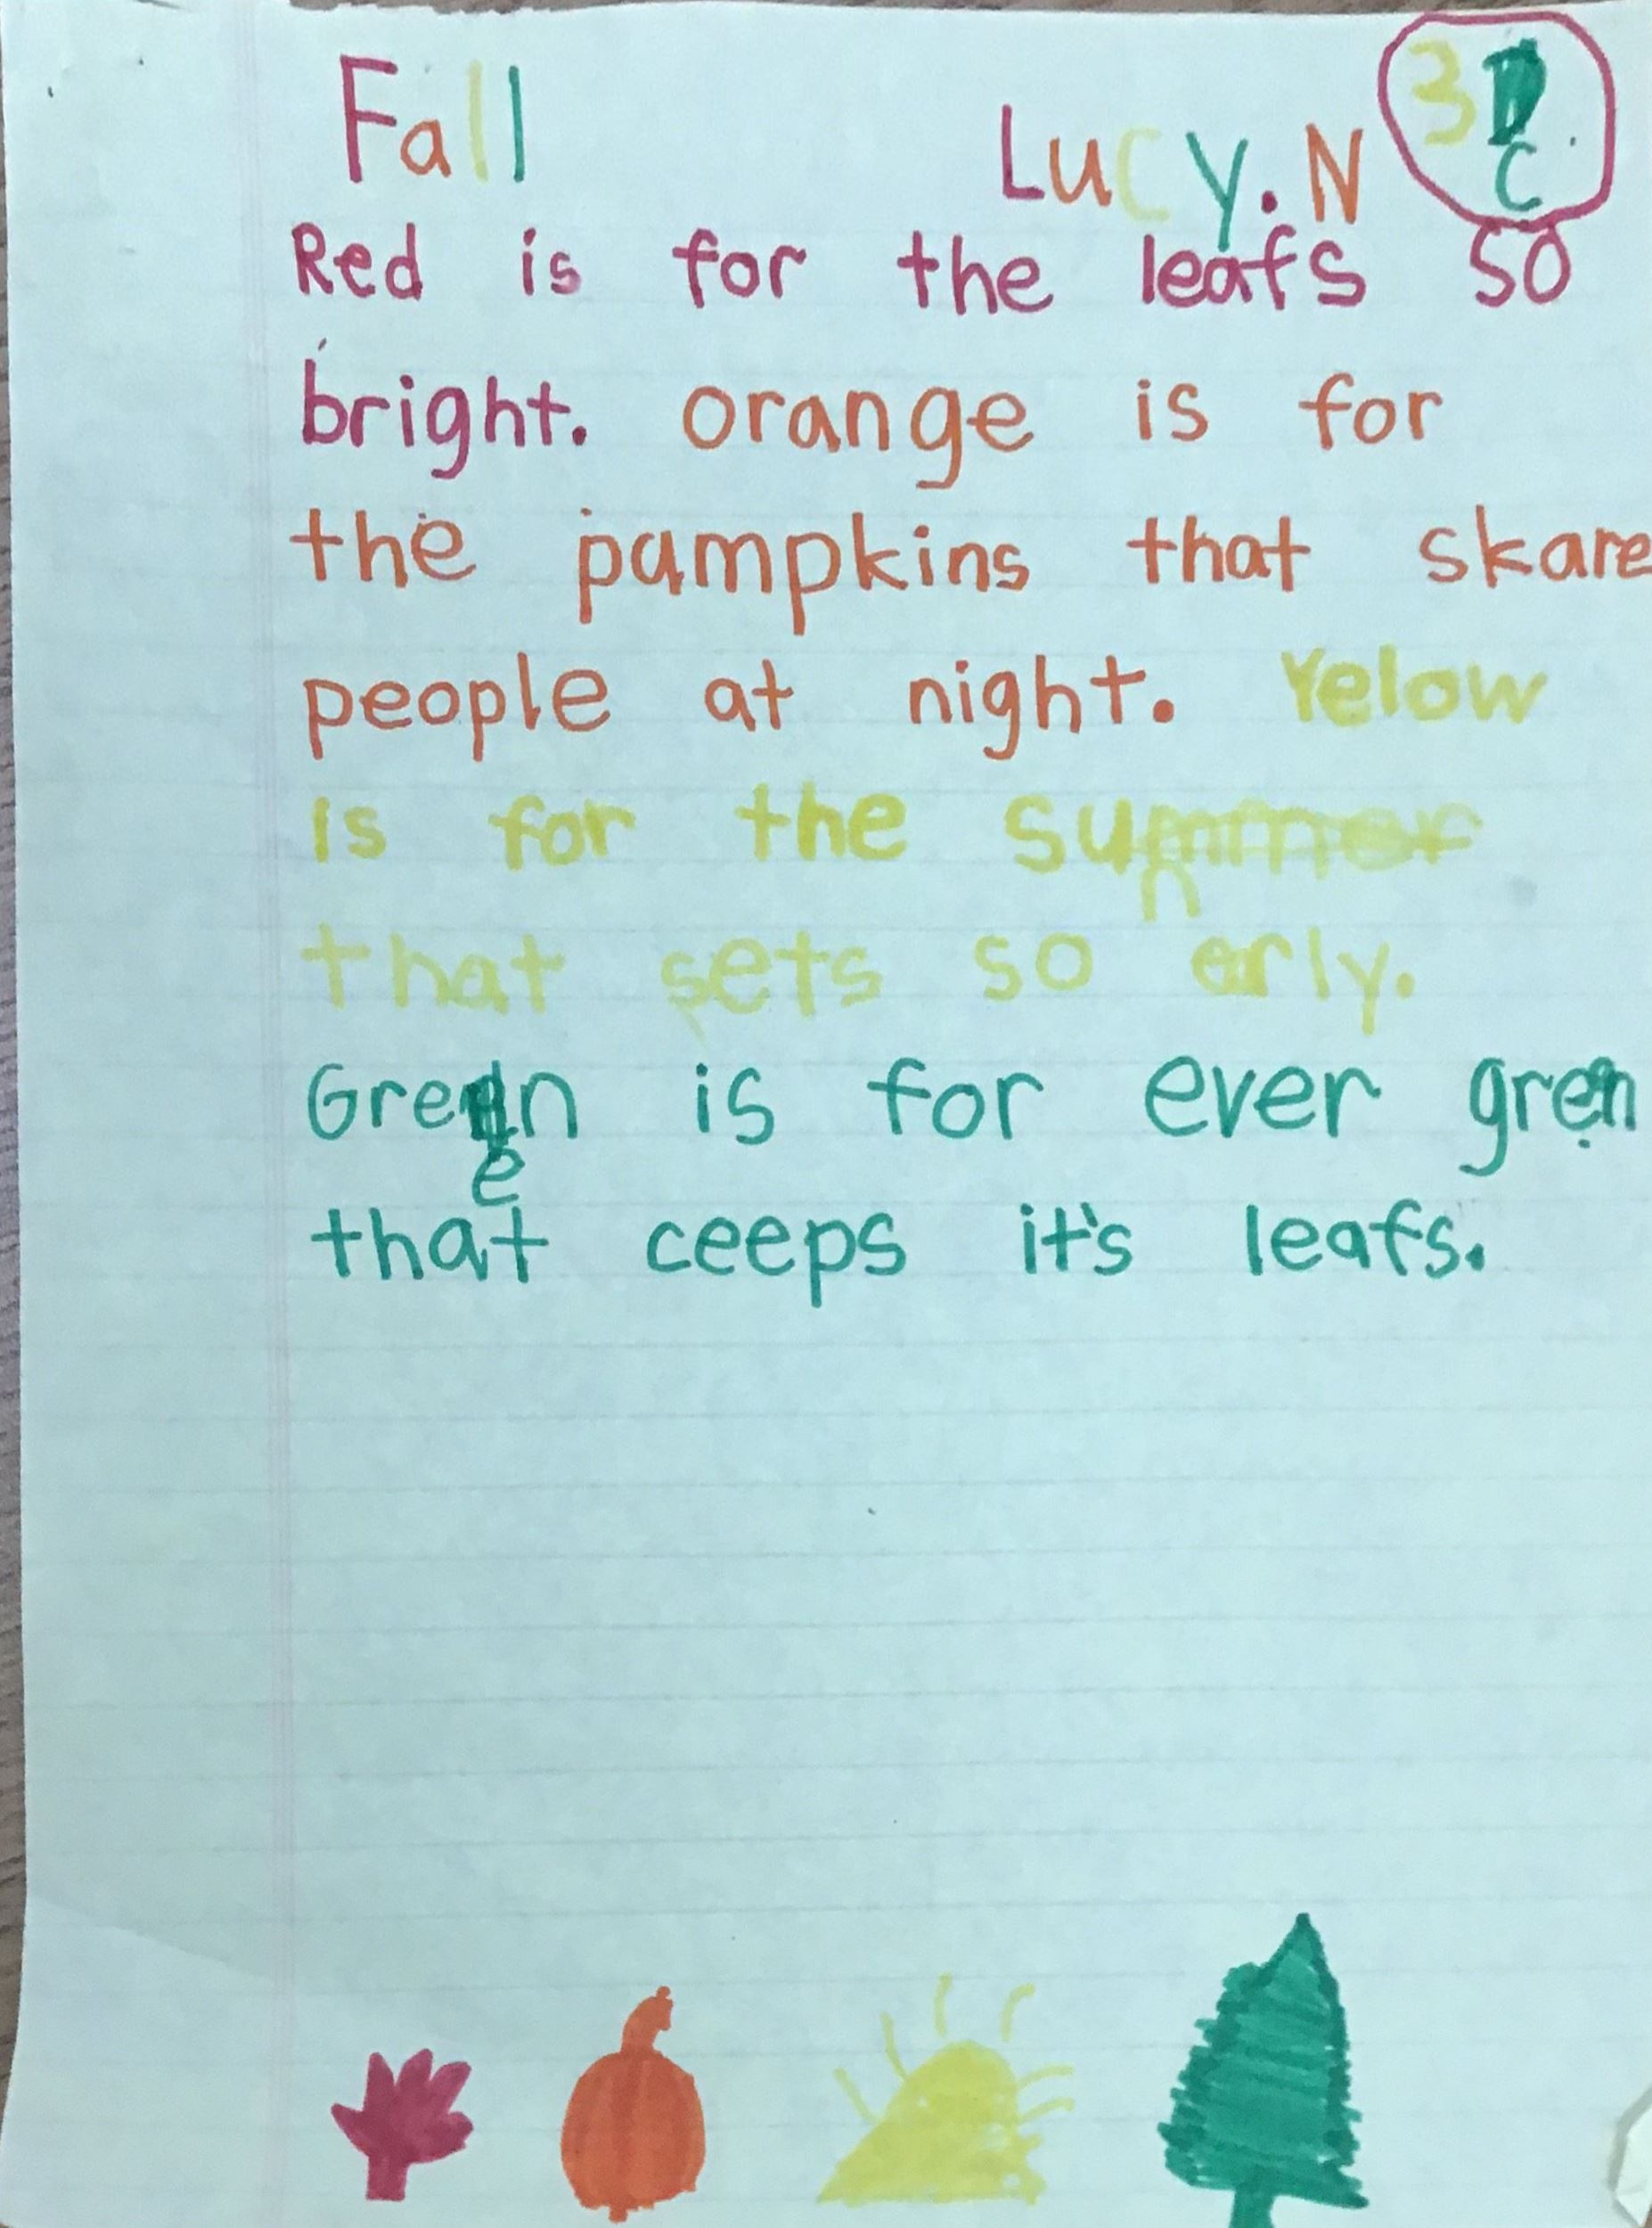 Fall Lucy.N 3C
Red is for the leafs so
bright. orange is for
the pumpkins that skare
people at night. Yelow
is for the sun
that sets so erly.
Green is for ever gren
that ceeps it's leafs.